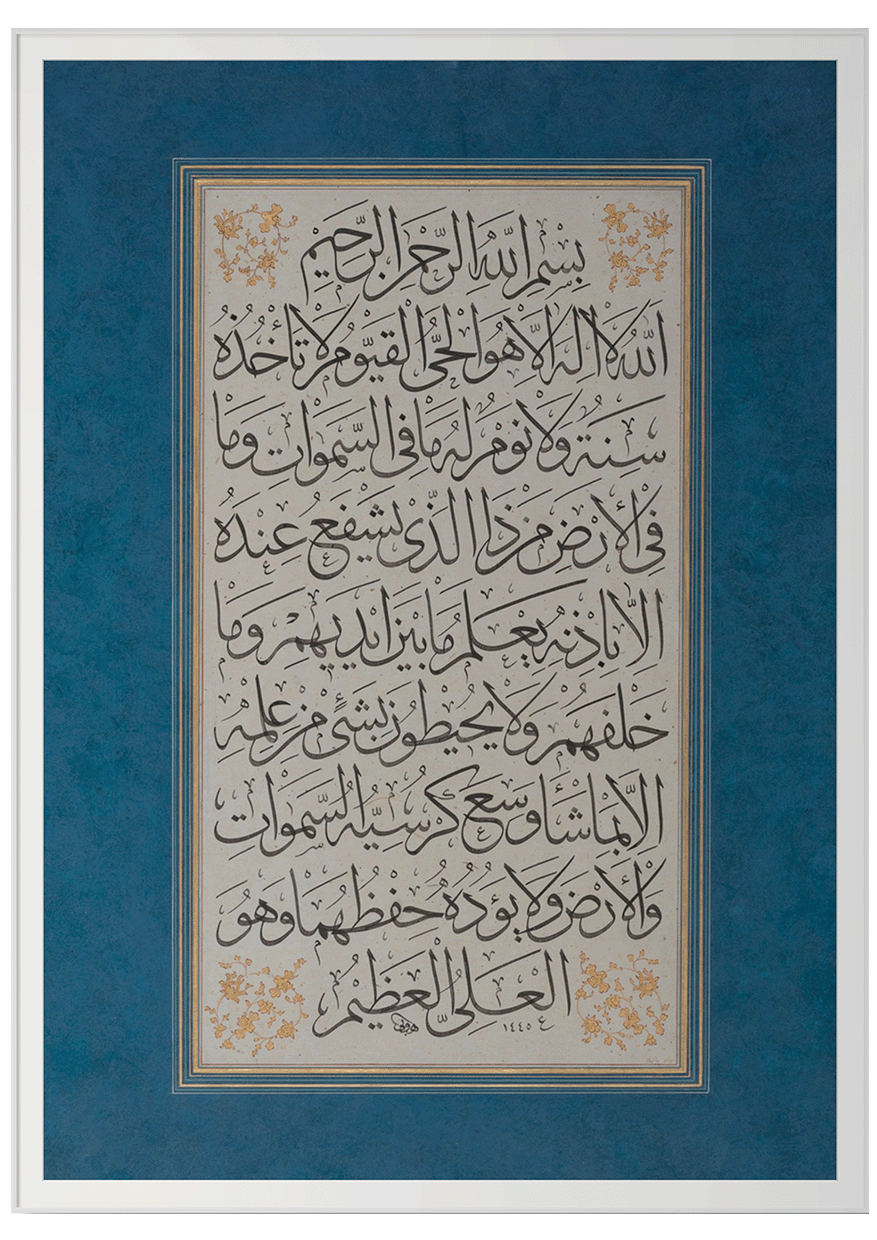 بِسْمِ اللّٰهِ الرَّحْمٰنِ الرَّحِيْمِ
اَللّٰهُ لَا اِلٰهَ اِلَّا هُوَ الْحَيُّ الْقَيُّوْمُ لَا تَأْخُذُهُ
سِنَةٌ وَلَا نَوْمٌ لَهُ مَا فِى السَّمٰوَاتِ وَمَا
فِى الْأَرْضِ مَنْ ذَا الَّذِى يَشْفَعُ عِنْدَهُ
اِلَّا بِاِذْنِهِ يَعْلَمُ مَا بَيْنَ اَيْدِيْهِمْ وَمَا
خَلْفَهُمْ وَلَا يُحِيْطُوْنَ بِشَئٍ مِنْ عِلْمِهِ
اِلَّا بِمَا شَاءَ وَسِعَ كُرْسِيُّهُ السَّمٰوَاتِ
وَالْأَرْضَ وَلَا يَؤُدُهُ حِفْظُهُمَا وَهُوَ
الْعَلِىُّ الْعَظِيْمُ
ع ١٤٤٥